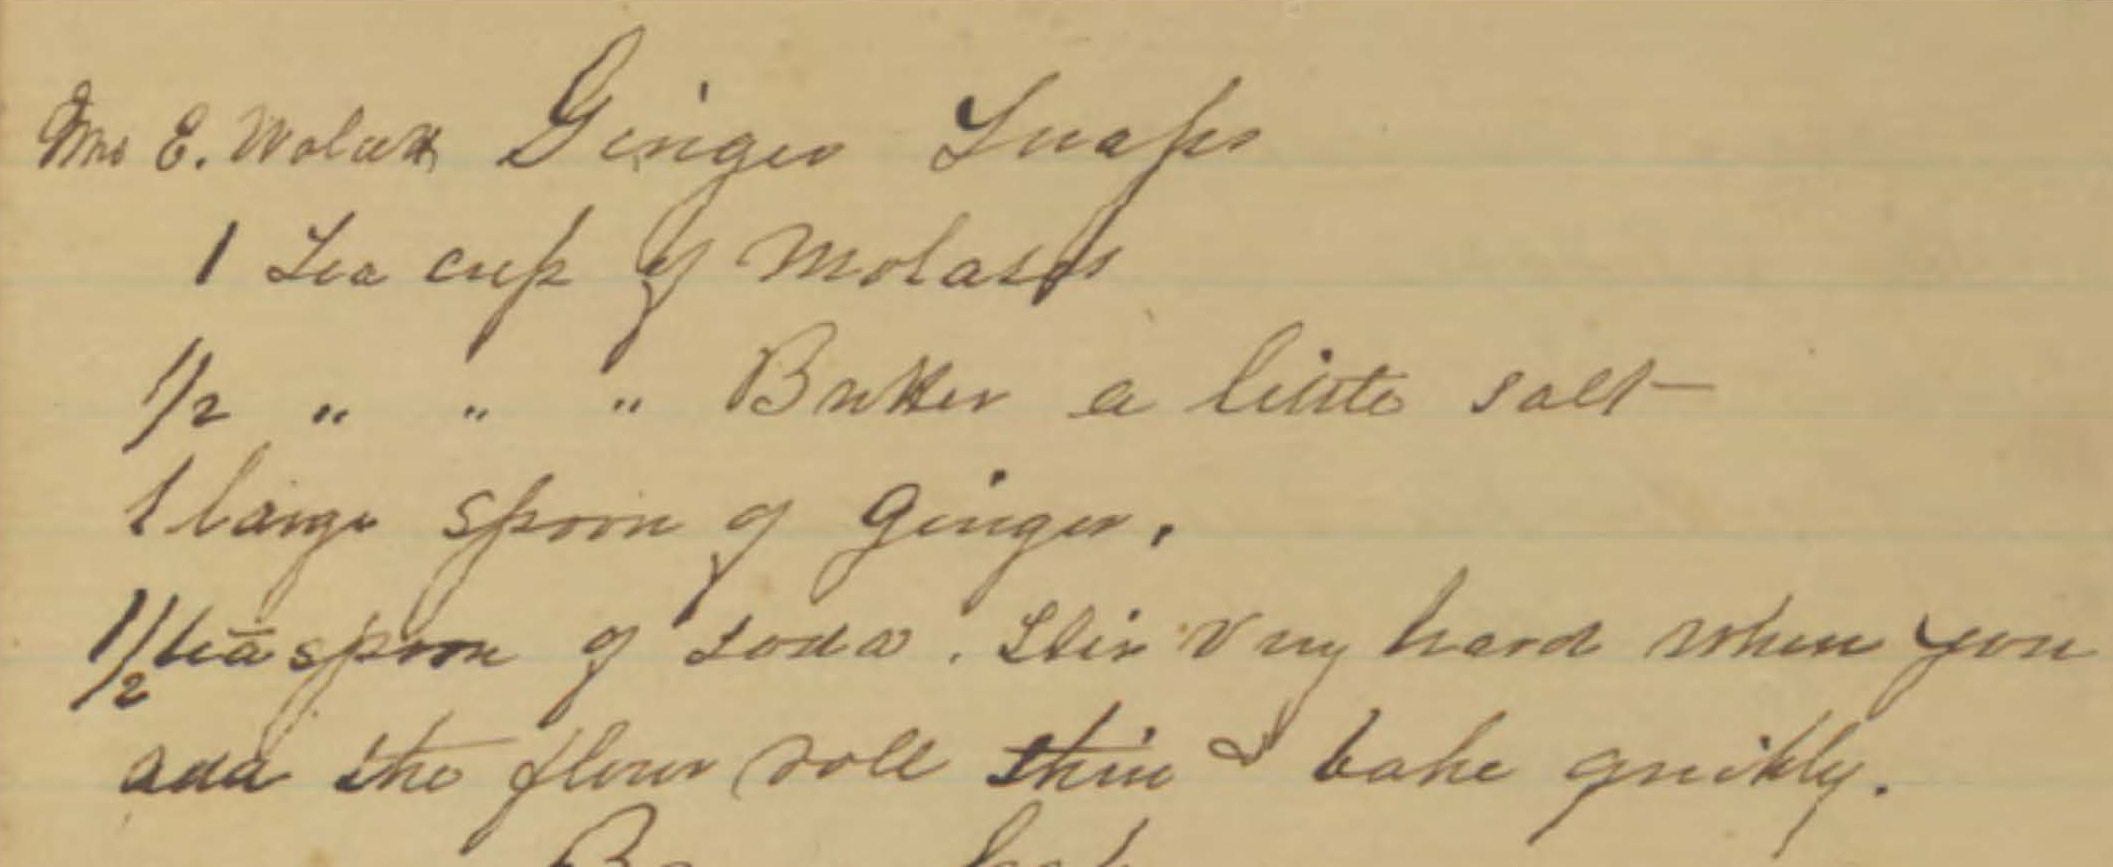 Mrs E. Ginger Snaps
1 Tea cup of Molasses
1/2 " " " Butter a little salt
1 large spoon of Ginger.
1/2 tea spoon of soda. Stir very hard when you
add the flour roll thin & bake quikly.